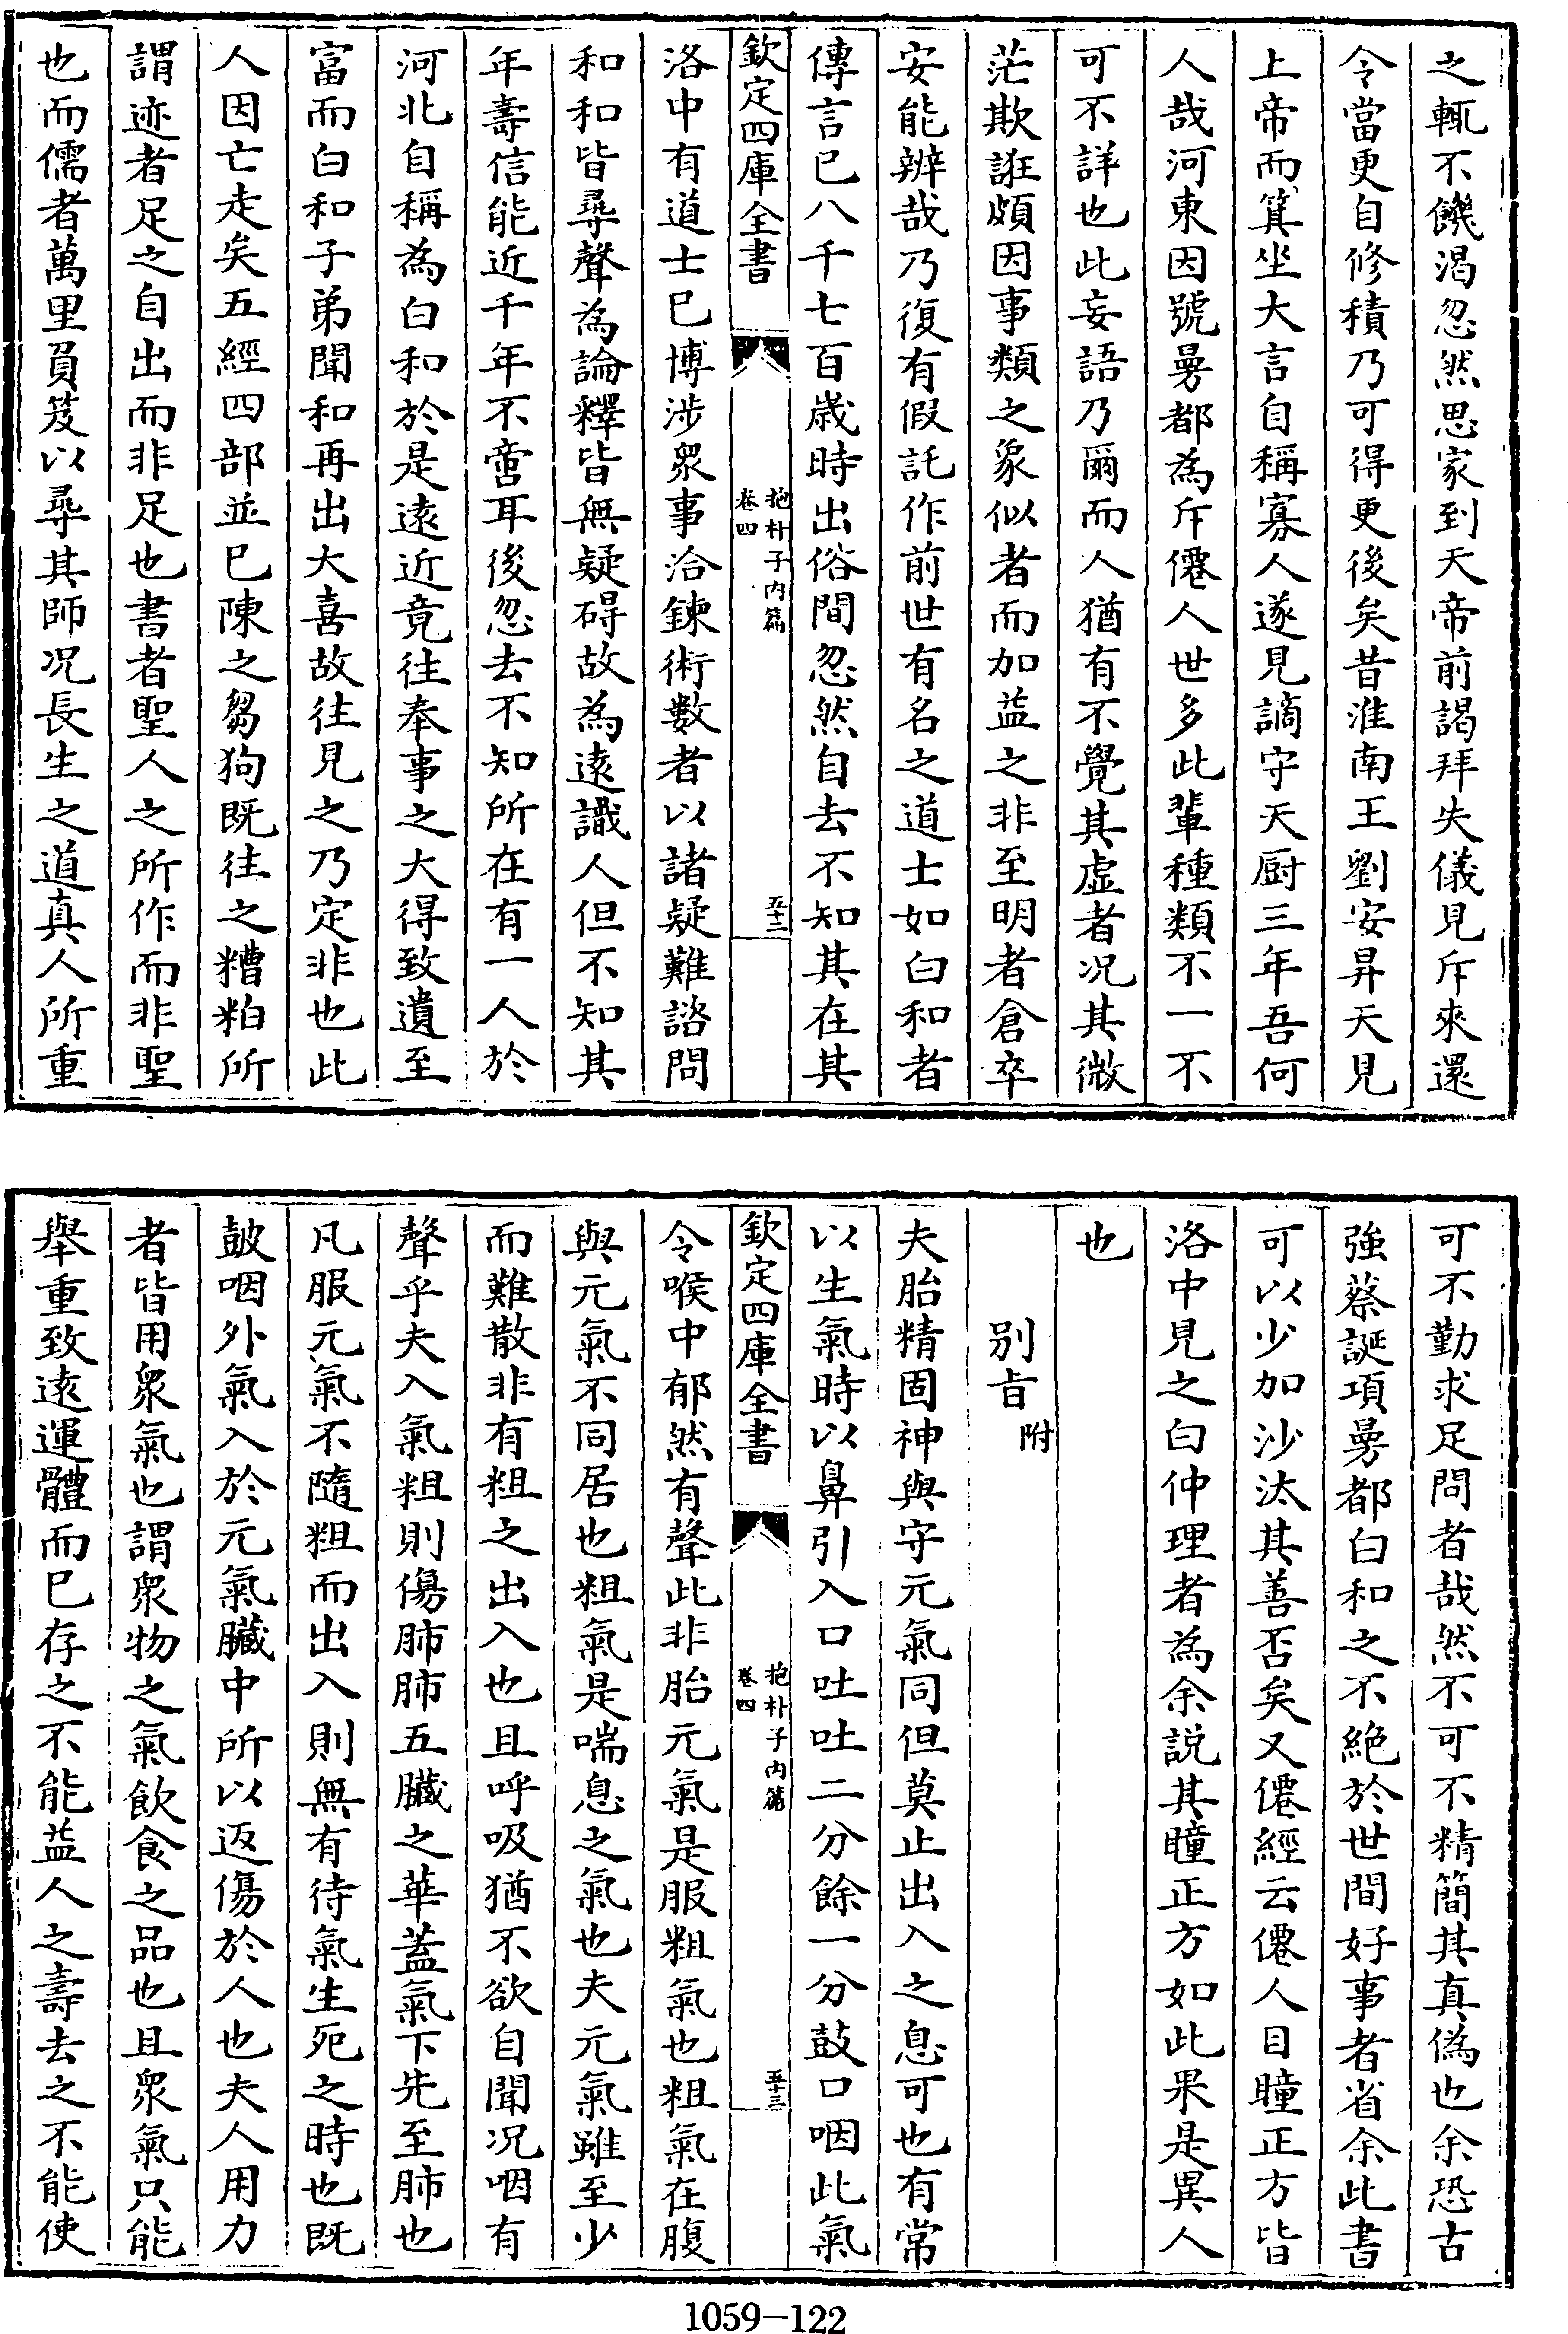 之輒不饑渴忽然思家到天帝前謁拜失儀見斥來還
令當更自修積乃可得更後矣昔淮南王劉安昇天見
上帝而箕坐大言自稱寡人遂見謫守天厨三年吾何
人哉河東因號曼都為斥僊人世多此輩種類不一不
可不詳也此妄語乃爾而人猶有不覺其虚者况其微
茫欺誑頗因事類之象似者而加益之非至明者倉卒
安能辨哉乃復有假託作前世有名之道士如白和者
傳言已八千七百歲時出俗間忽然自去不知其在其
欽定四庫全書
抱朴子内篇
卷四
五十二
洛中有道士已博涉衆事洽鍊術數者以諸疑難諮問
和和皆尋聲為論釋皆無疑碍故為遠識人但不知其
年壽信能近千年不啻耳後忽去不知所在有一人於
河北自稱為白和於是遠近竟往奉事之大得致遺至
富而白和子弟聞和再出大喜故往見之乃定非也此
人因亡走矣五經四部並已陳之芻狗既往之糟粕所
謂迹者足之自出而非足也書者聖人之所作而非聖
也而儒者萬里負笈以尋其師况長生之道真人所重
可不勤求足問者哉然不可不精簡其真偽也余恐古
強蔡誕項曼都白和之不絶於世間好事者省余此書
可以少加沙汰其善否矣又僊經云僊人目瞳正方皆
洛中見之白仲理者為余説其瞳正方如此果是異人
也
別旨附
夫胎精固神與守元氣同但莫止出入之息可也有常
以生氣時以鼻引入口吐吐二分餘一分鼓口咽此氣
欽定四庫全書
抱朴子内篇
卷四
五十三
令喉中郁然有聲此非胎元氣是服粗氣也粗氣在腹
與元氣不同居也粗氣是喘息之氣也夫元氣雖至少
而難散非有粗之出入也且呼吸猶不欲自聞况咽有
聲乎夫入氣粗則傷肺肺五臟之華蓋氣下先至肺也
凡服元氣不隨粗而出入則無有待氣生死之時也既
皷咽外氣入於元氣臟中所以返傷於人也夫人用力
者皆用衆氣也謂衆物之氣飲食之品也且衆氣只能
舉重致遠運體而已存之不能益人之壽去之不能使
1059-122